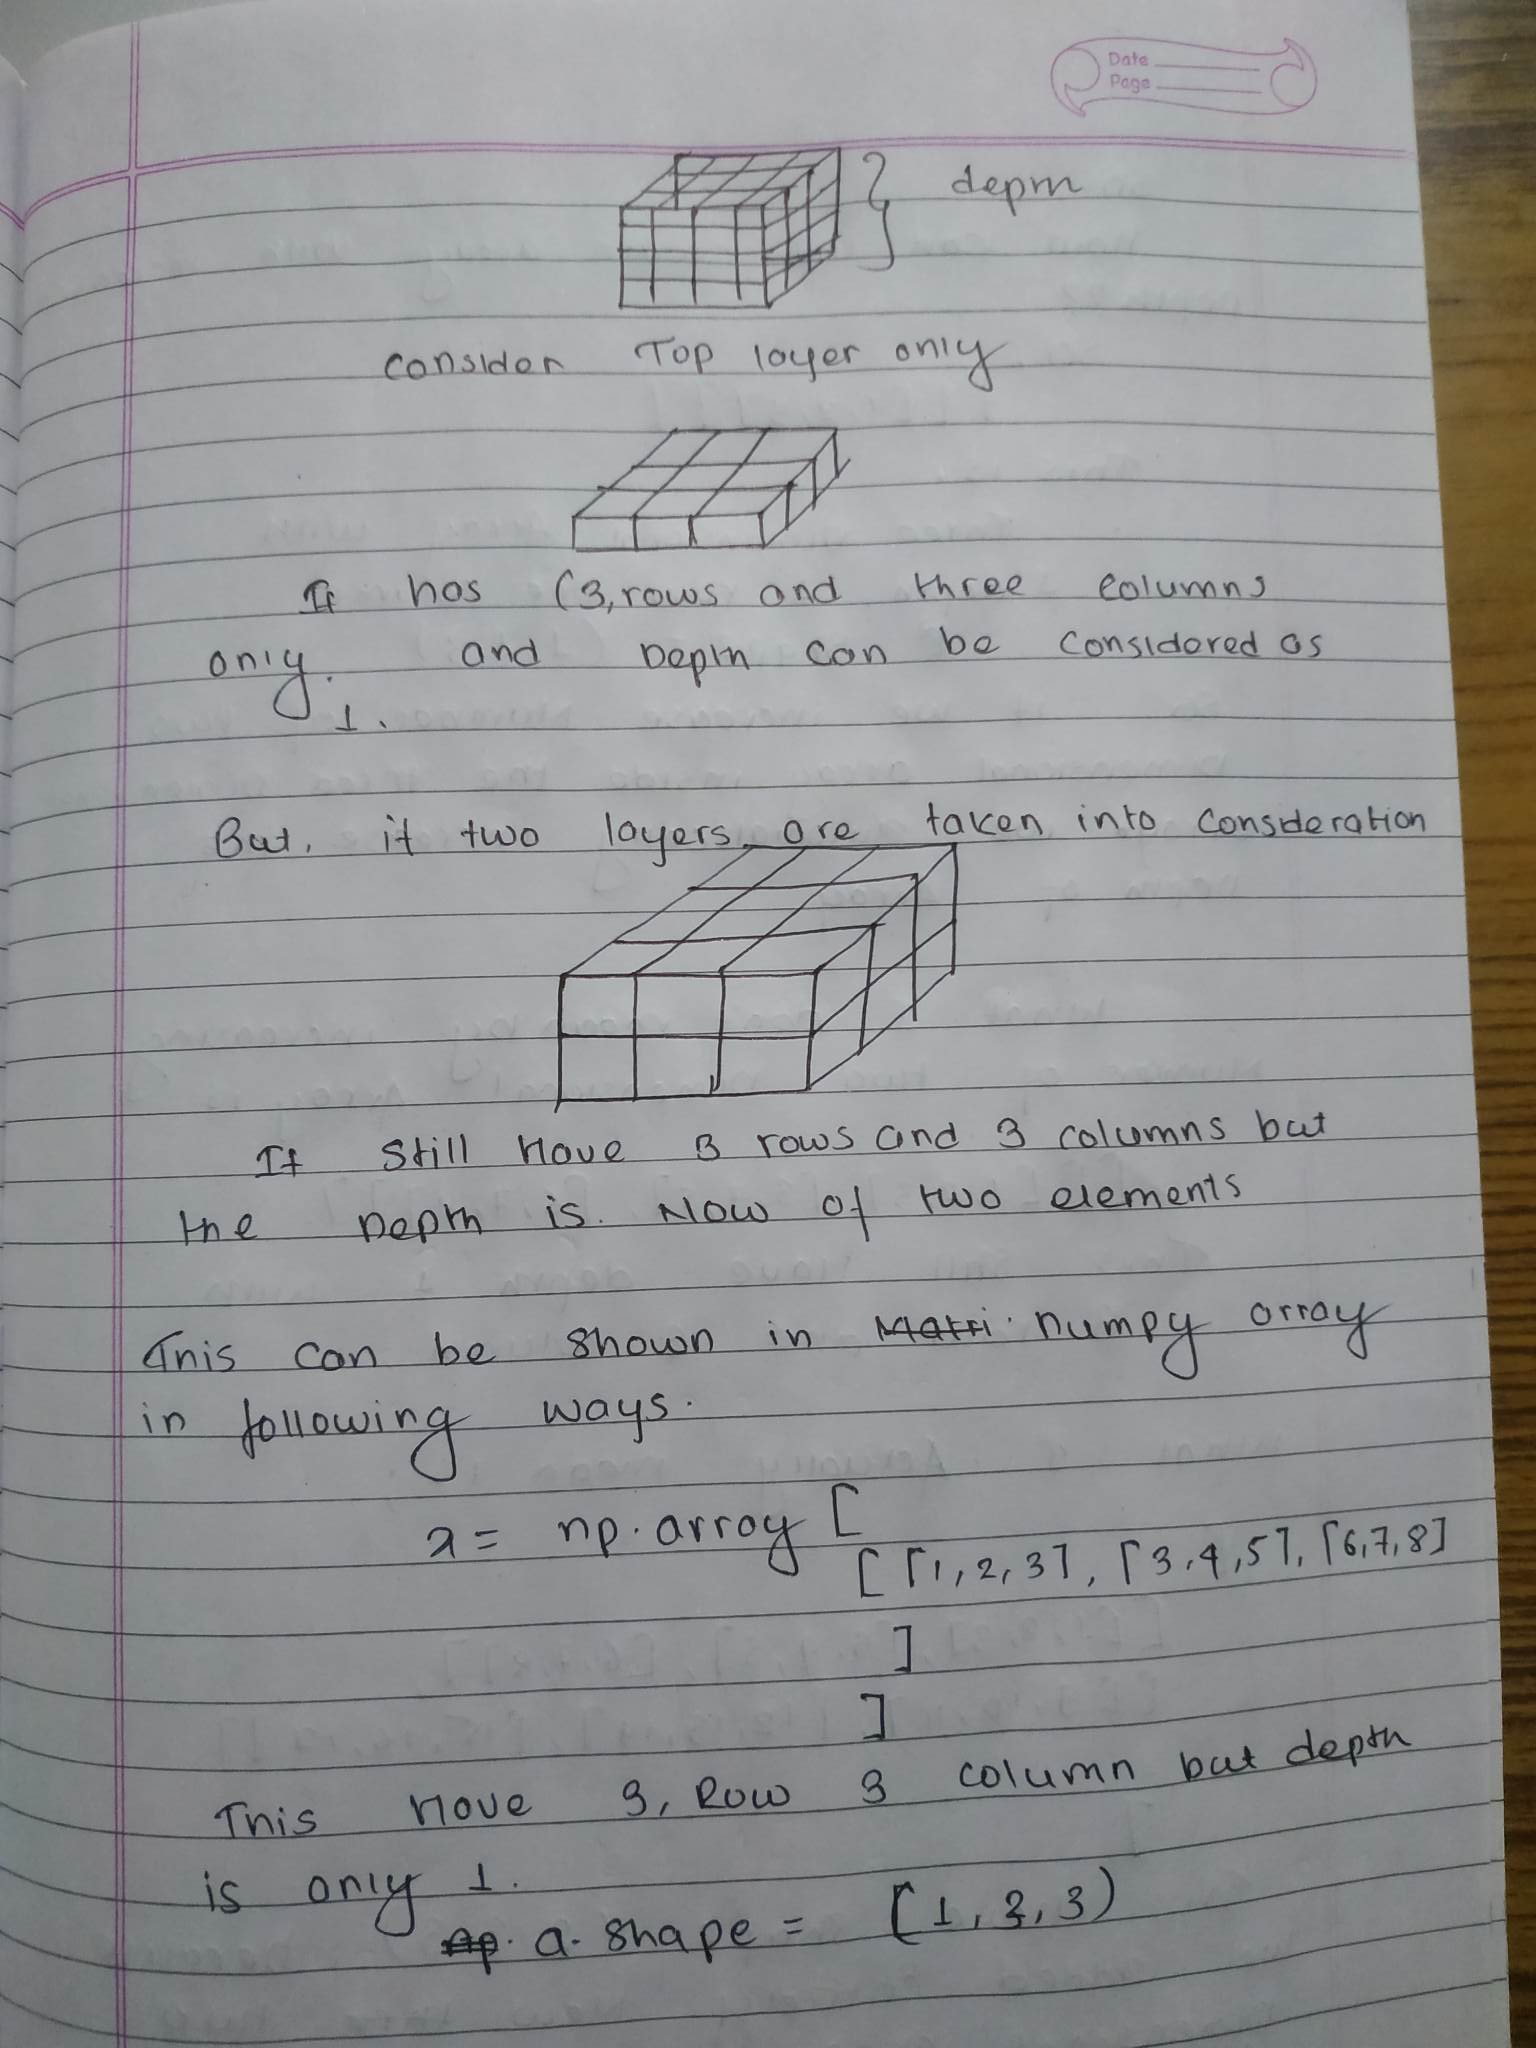 Date
Page
depth
consider Top layer only
It has (3, rows and three columns
only. and Depth can be considered as
1.
But, if two layers are taken into consideration
It still have 3 rows and 3 columns but
the Depth is. Now of two elements
This can be shown in Matri. numpy array
in following ways.
a = np.array [
[ [1, 2, 3], [3, 4, 5], [6, 7, 8]
]
]
This have 3, Row 3 column but depth
is only 1.
np. a. shape = (1, 3, 3)